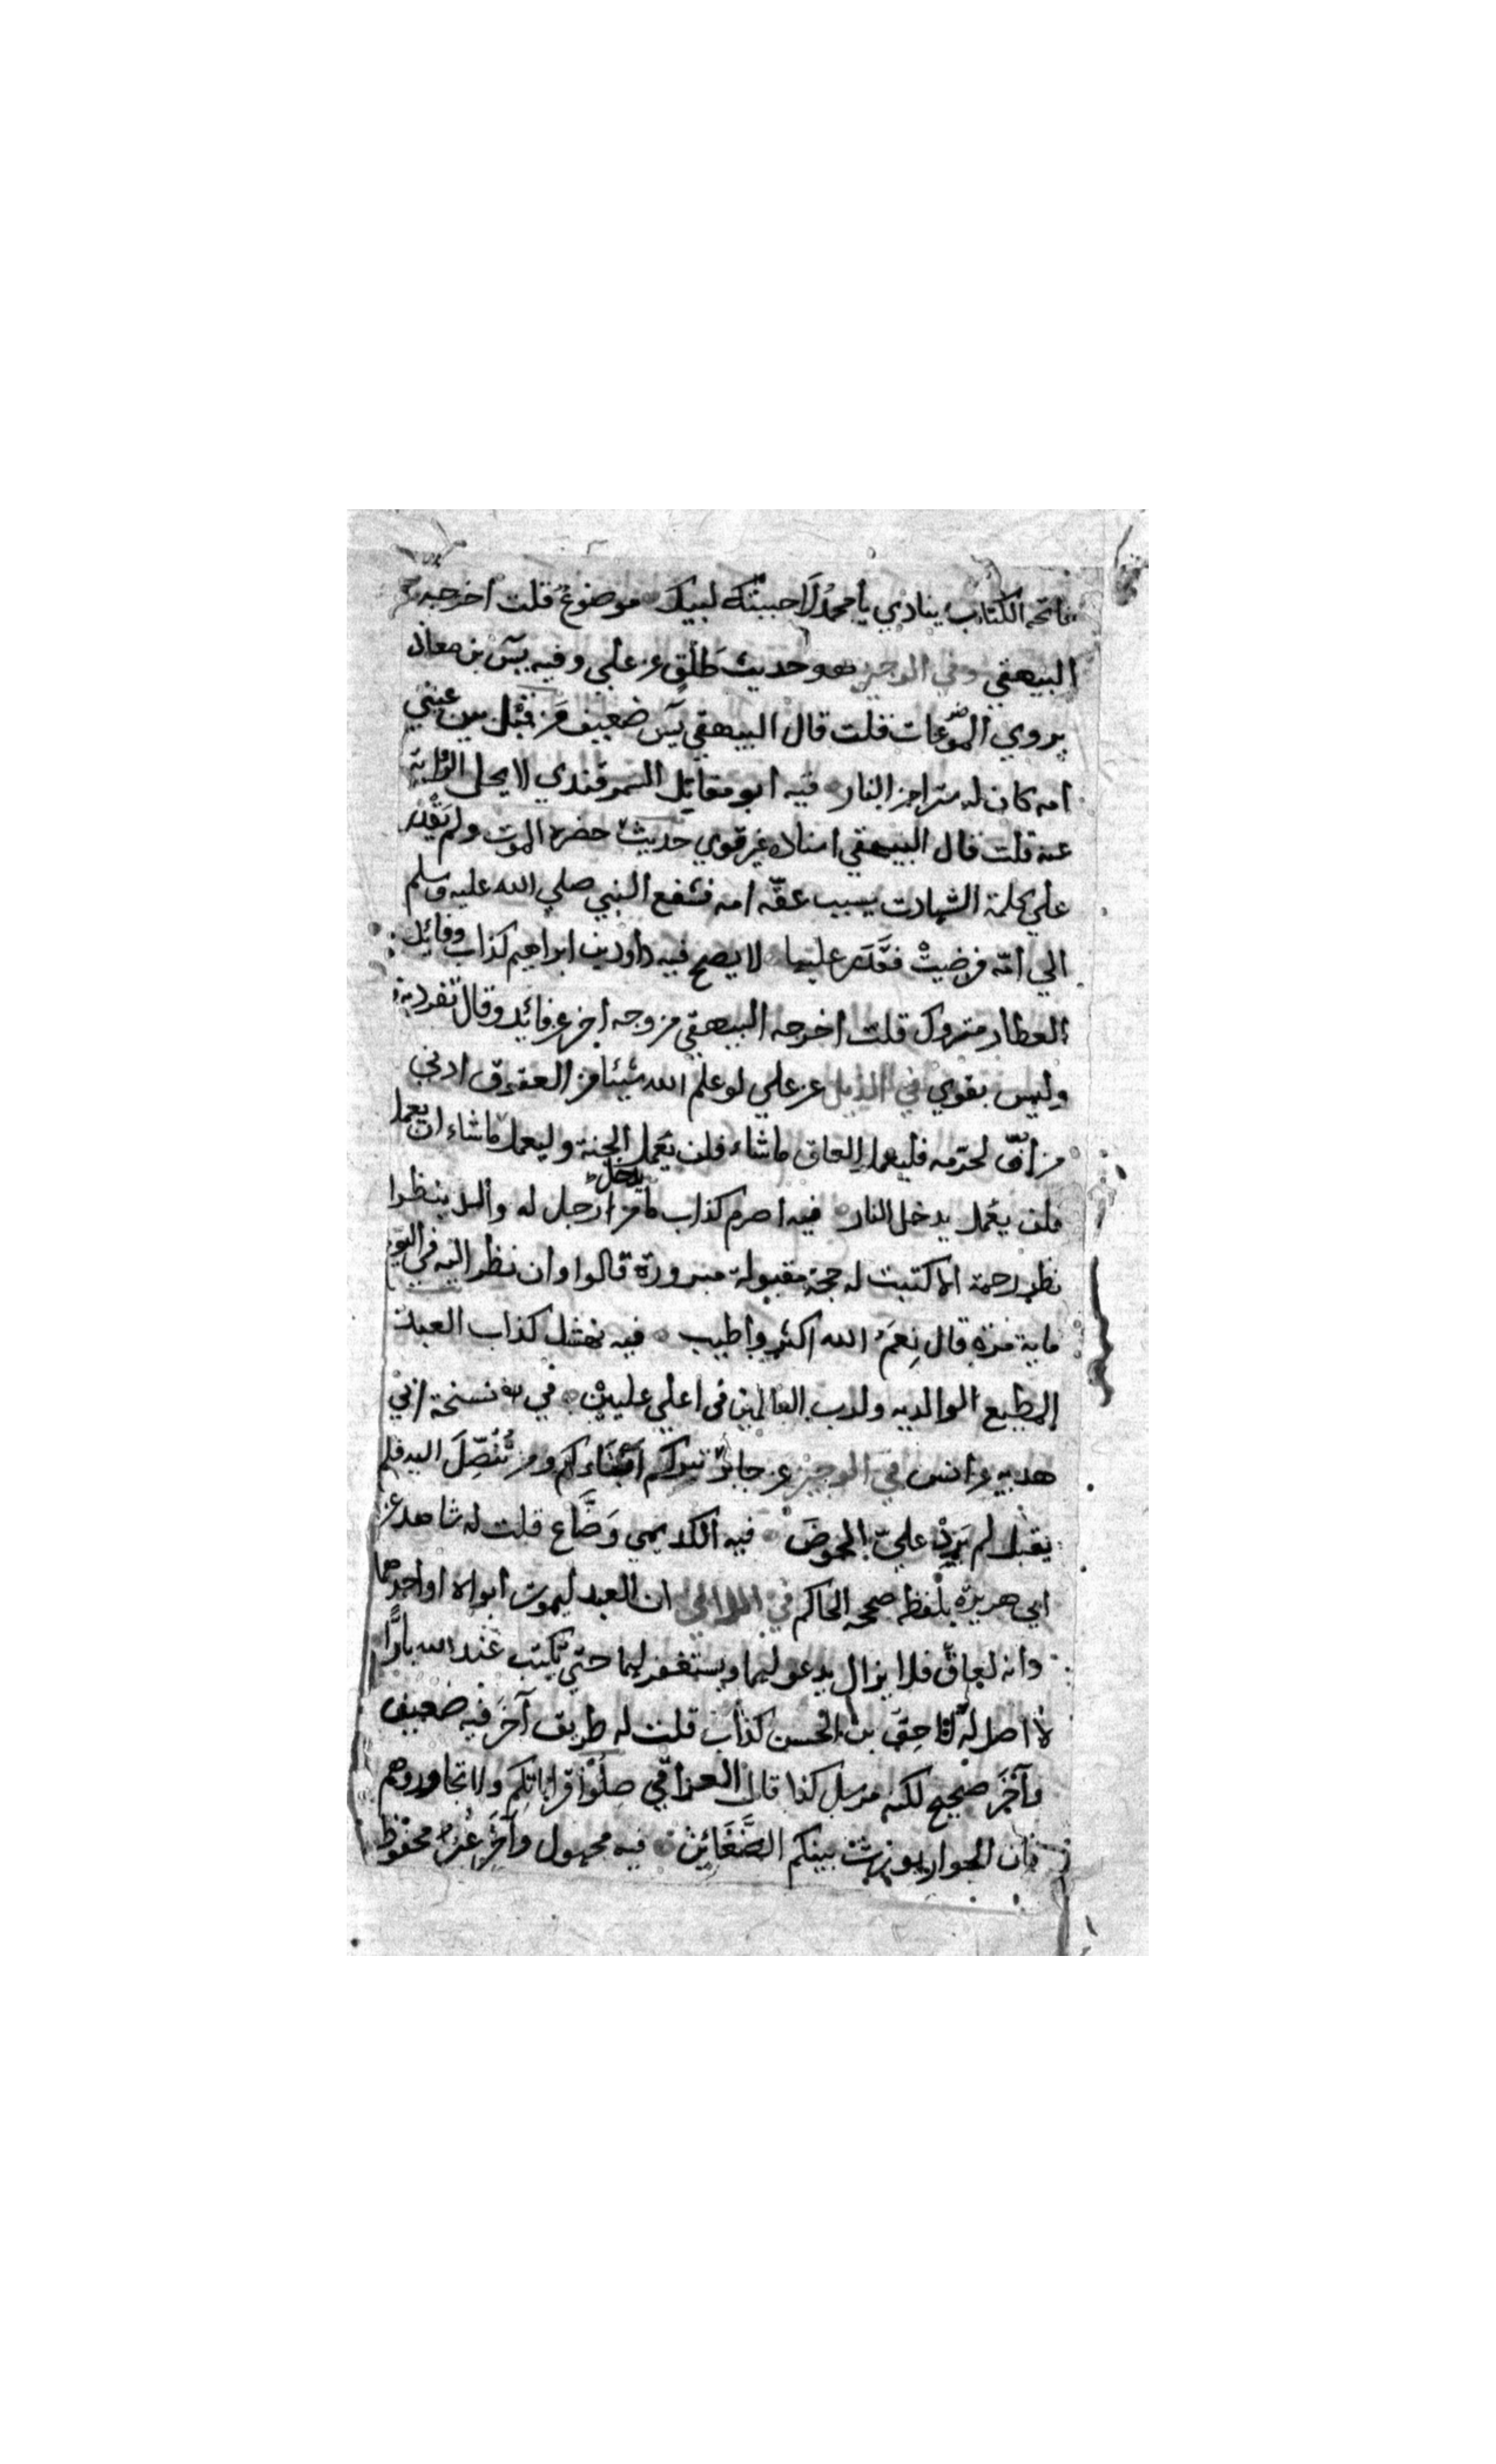 فاتحة الكتاب ينادي يا محمد لاجبتكه لبيك موضوع قلت اخرجه
البيهقي وفي الوجيز هو وحديث طلق عن علي وفيه يس بن معاذ
يروي الموضوعات قلت قال البيهقي يس ضعيف من قبل بين عيني
امه كان له سترا من النار فيه ابو مقاتل السمرقندي لا يحل الرواية
عنه قلت قال البيهقي اسناده غير قوي حديث حضره الموت ولم يقدر
علي كلمة الشهادت بسبب عقه امه فشفع النبي صلي الله عليه وسلم
الي امه فرضيت فقدر عليها لا يصح فيه داود بن ابراهيم كذاب وفائد
العطار متروك قلت اخرجه البيهقي من وجه اخر عن فائد وقال تفرد به
وليس بقوي في الذيل عن علي لو علم الله شيئا من العقوق ادني
من اف لحرمه فليعمل العاق ما شاء فلن يدخل الجنة وليعمل ما شاء ان يعمل
فلن يعمل يدخل النار فيه اصرم كذاب ما من رجل له والد ينظر
نظر رحمة الا كتبت له حجة مقبولة مبرورة قالوا وان نظر اليه في اليوم
ماية مرة قال نعم الله اكثر واطيب فيه نهشل كذاب العبد
المطيع لوالديه ولرب العالمين في اعلي عليين في نسخة ابي
هدبه عن انس في الوجيز عن جابر تبركم ابناءكم ومن تنصل اليه فلم
يقبل لم يرد علي الحوض فيه الكديمي وضاع قلت له شاهد عن
ابي هريرة بلفظه صححه الحاكم في اللالي ان العبد ليموت ابواه او احدهما
وانه لعاق فلا يزال يدعو لهما ويستغفر لهما حتي يكتب عند الله بارا
لا اصل له لاحق بن الحسن كذاب قلت له طريق آخر فيه ضعيف
وآخر صحيح لكنه مرسل كذا قال العراقي صلوا قراباتكم ولا تجاوروهم
فان الجوار يورث بينكم الضغائن فيه مجهول وآخر غير محفوظ